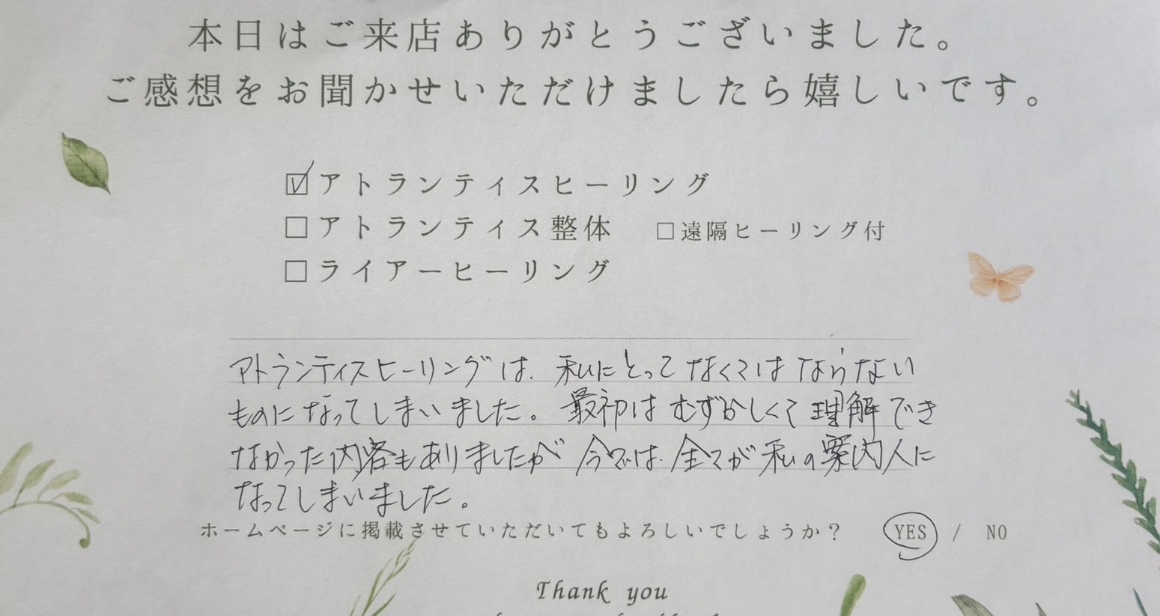 本日はご来店ありがとうございました。
ご感想をお聞かせいただけましたら嬉しいです。
☑アトランティスヒーリング
□アトランティス整体 □遠隔ヒーリング付
□ライアーヒーリング
アトランティスヒーリングは、私にとってなくてはならない
ものになってしまいました。最初はむずかしくて理解でき
なかった内容もありましたが今では、全てが私の案内人に
なってしまいました。
ホームページに掲載させていただいてもよろしいでしょうか? YES / NO
Thank you